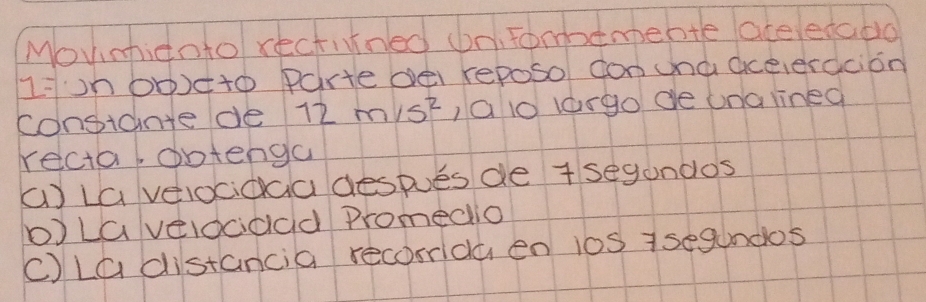 Movimiento rectilíneo Uniformemente acelerado
1= Un objeto Parte del reposo con una aceleración
constante de 12 m/s², a lo largo de una linea
recta. obtenga
a) La velocidad después de 7 segundos
b) La velocidad Promedio
c) La distancia recorrida en los 7 segundos